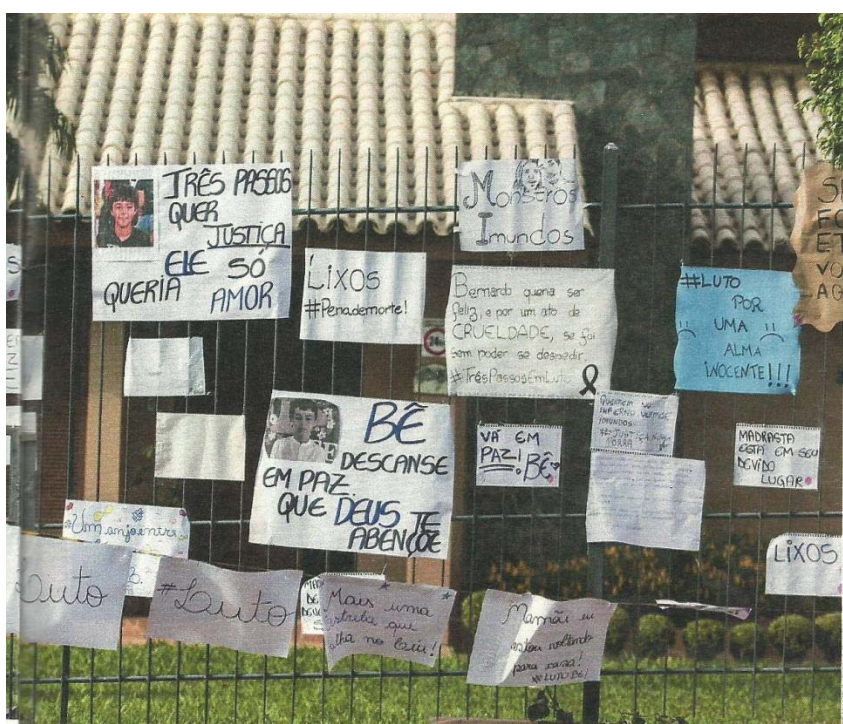 TRÊS PASSOS
QUER
JUSTIÇA
ELE SÓ
QUERIA AMOR
MONSTROS
IMUNDOS
LIXOS
#Penademorte!
Bernardo queria ser
feliz, e por um ato de
CRUELDADE, se foi
sem poder se despedir.
#TrêsPassosEmLuto
#LUTO
POR
UMA
ALMA
INOCENTE!!!
BÊ
DESCANSE
EM PAZ
QUE DEUS TE
ABENÇOE
VÁ EM
PAZ! BÊ
QUEIMEM NO
INFERNO VERMES
IMUNDOS
PORRA
MADRASTA
ESTA EM SEU
DEVIDO
LUGAR
LIXOS
#Um anjo entre
B.
Luto
#Luto
MAD
DE
DEV
Mais uma
estrela que
no céu!
Mamãe eu
estou voltando
para casa!
#LUTO BÊ!